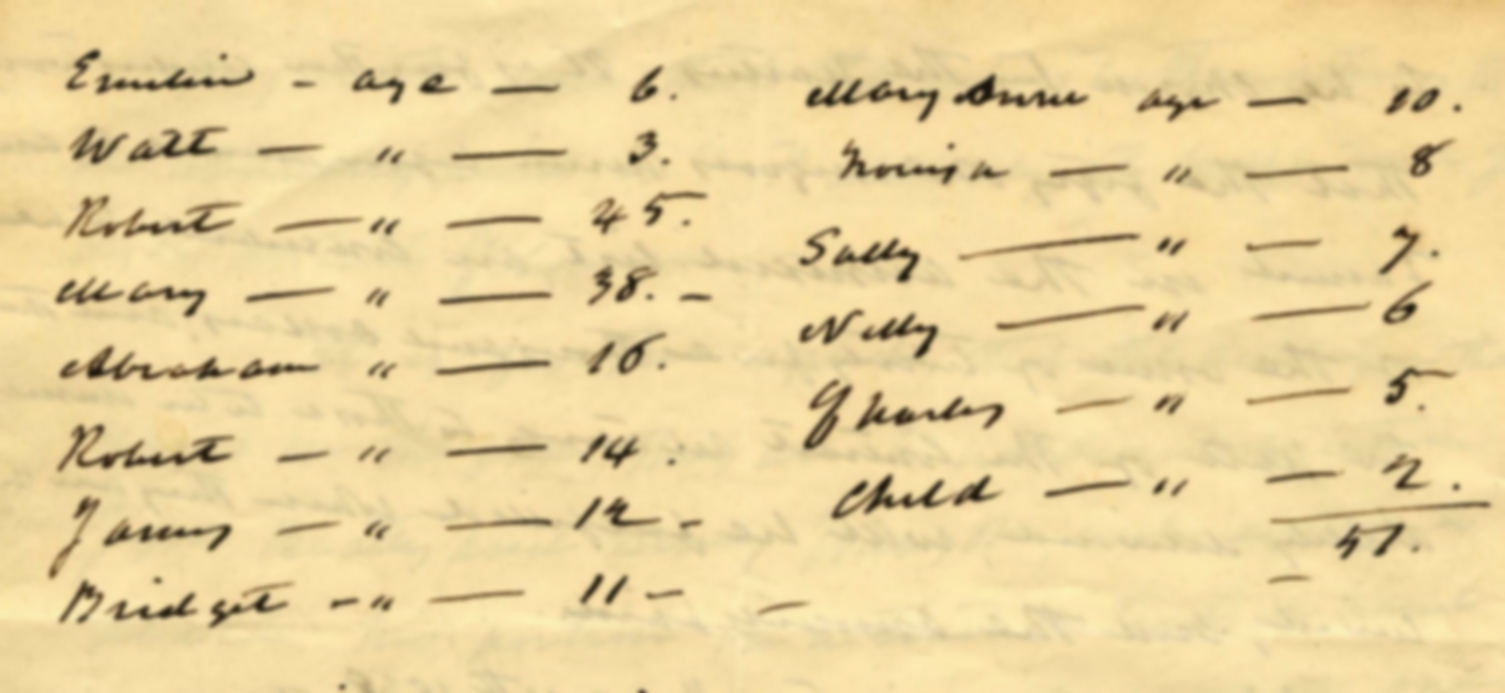 Emeline - age — 6.
Watt — " — 3.
Robert — " — 45.
Mary — " — 38. -
Abraham " — 16.
Robert — " — 14.
James — " — 12 -
Bridget - " — 11 -
Mary Anne age — 10.
Louisa — " — 8
Sally — " — 7.
Nelly — " — 6
Charles — " — 5.
Child — " — 2.
51.